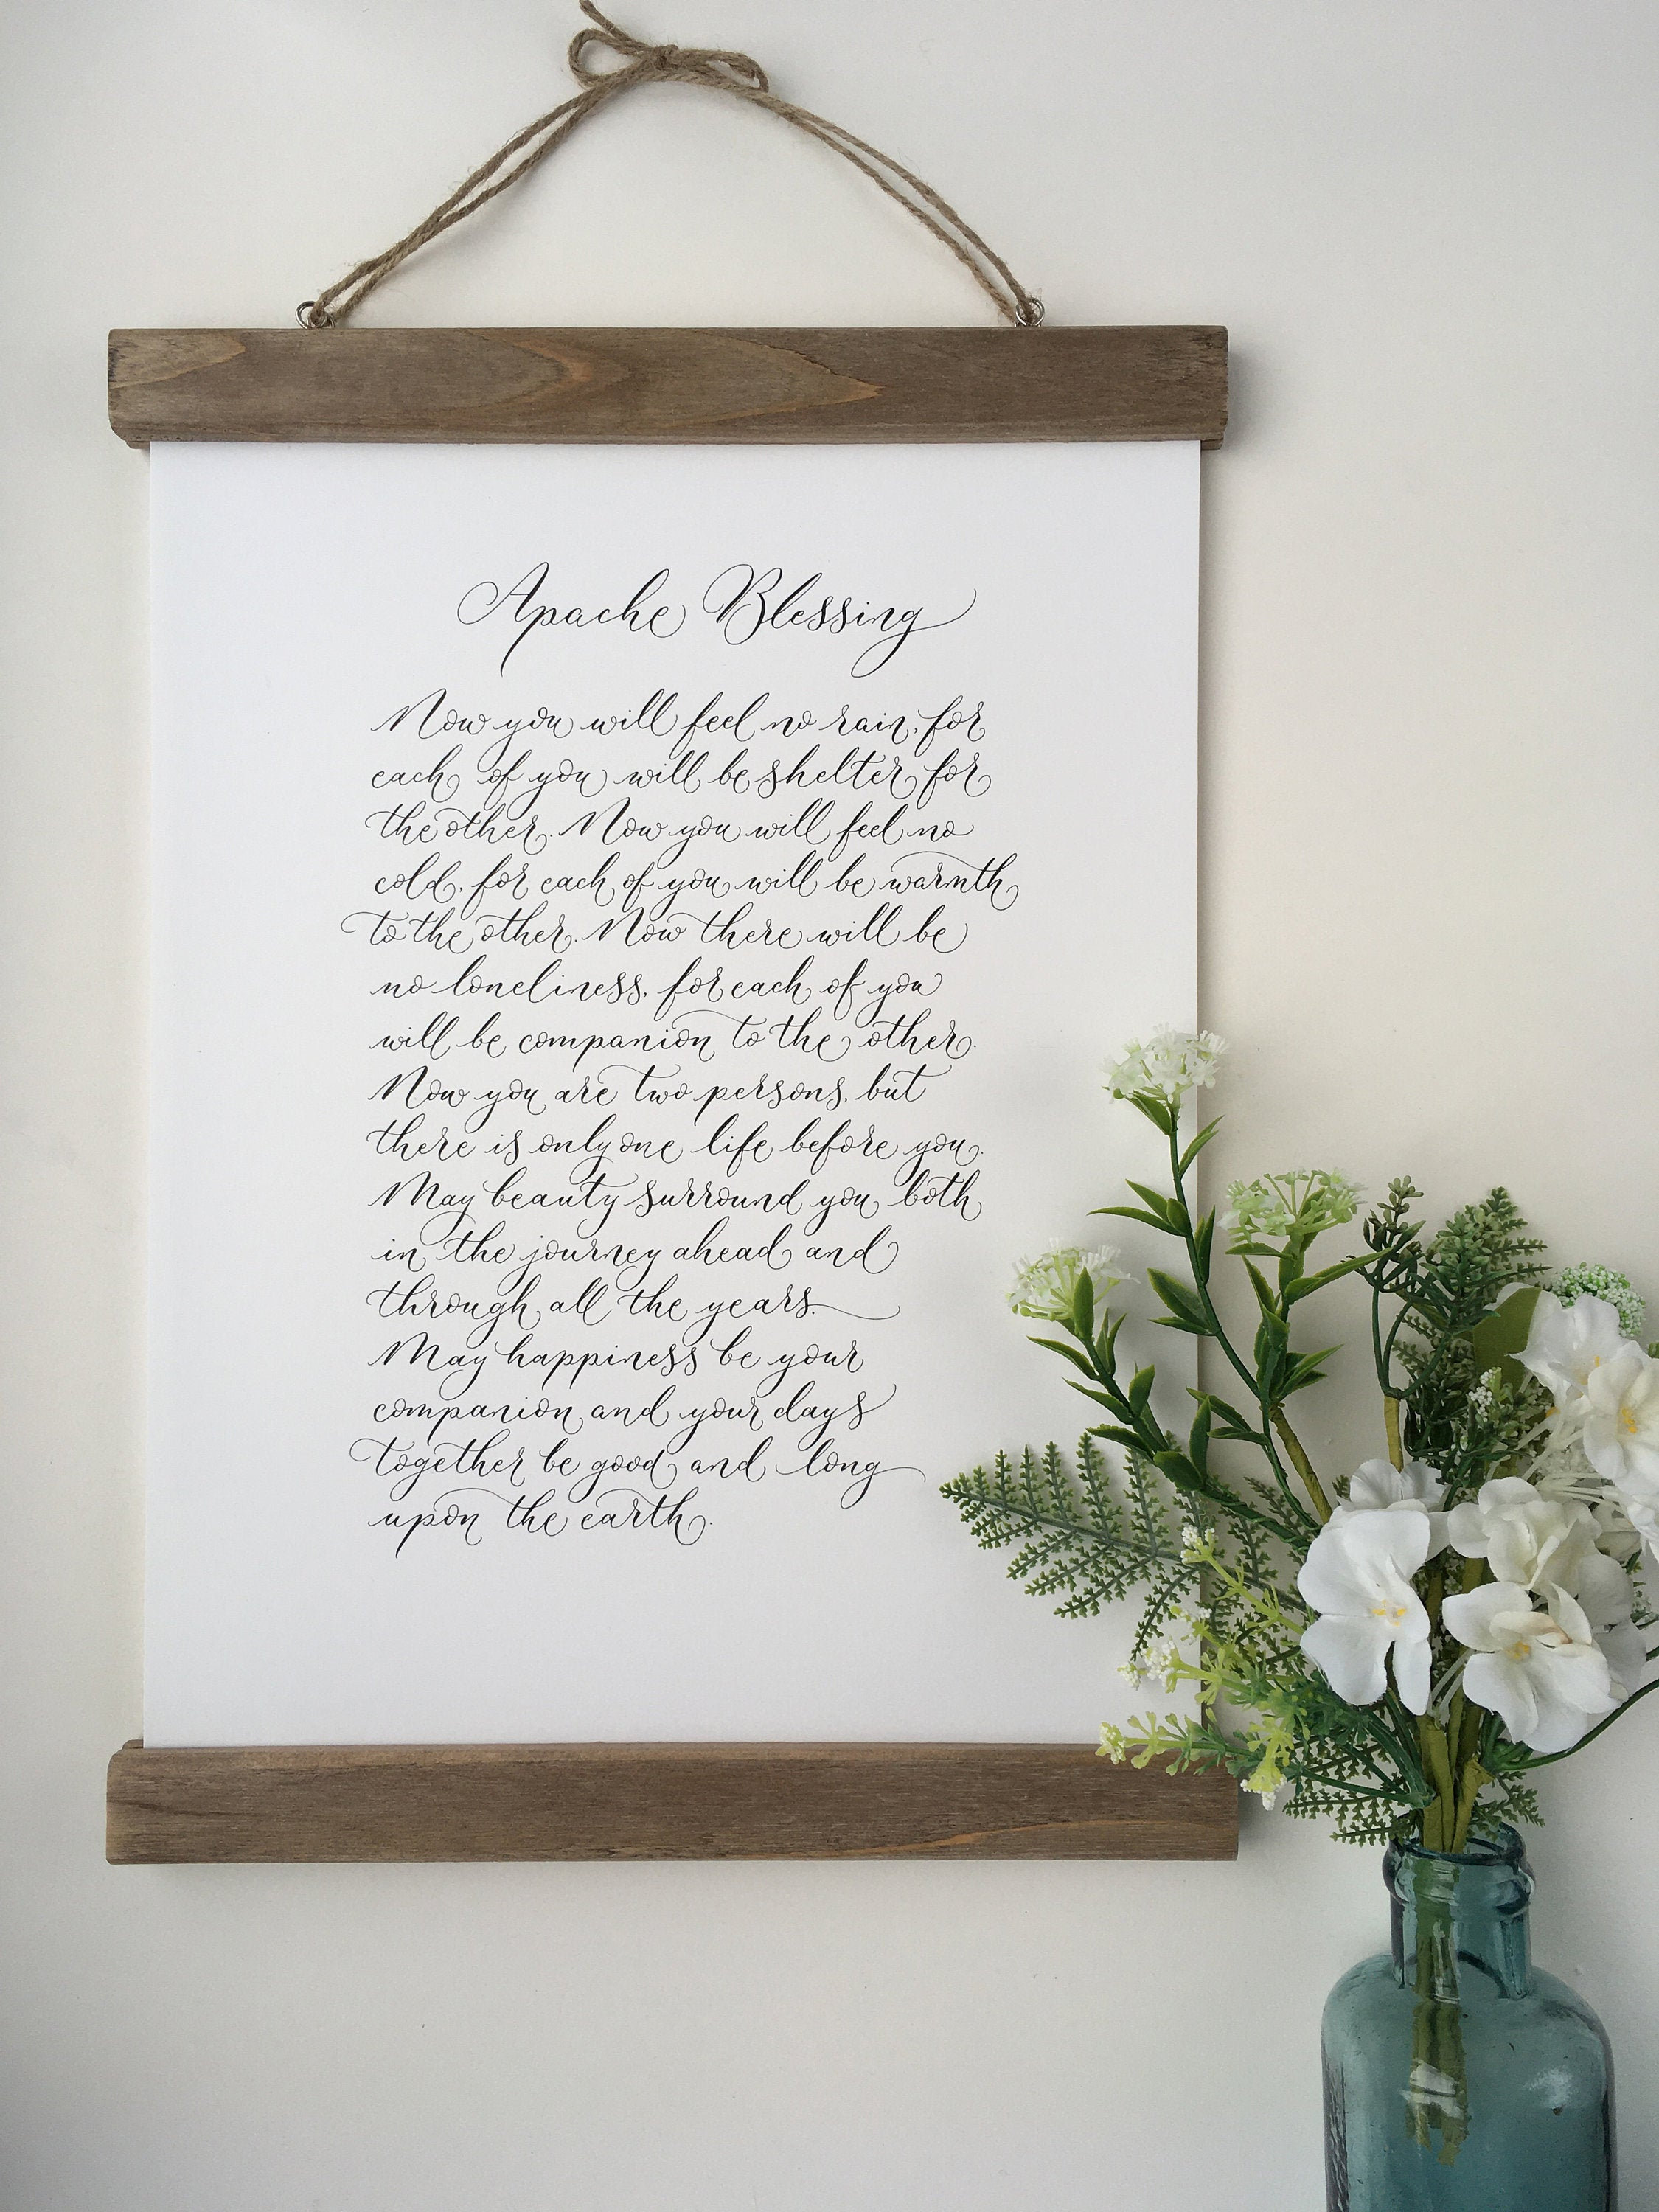 Apache Blessing
Now you will feel no rain, for
each of you will be shelter for
the other. Now you will feel no
cold, for each of you will be warmth
to the other. Now there will be
no loneliness, for each of you
will be companion to the other.
Now you are two persons, but
there is only one life before you.
May beauty surround you both
in the journey ahead and
through all the years.
May happiness be your
companion and your days
together be good and long
upon the earth.